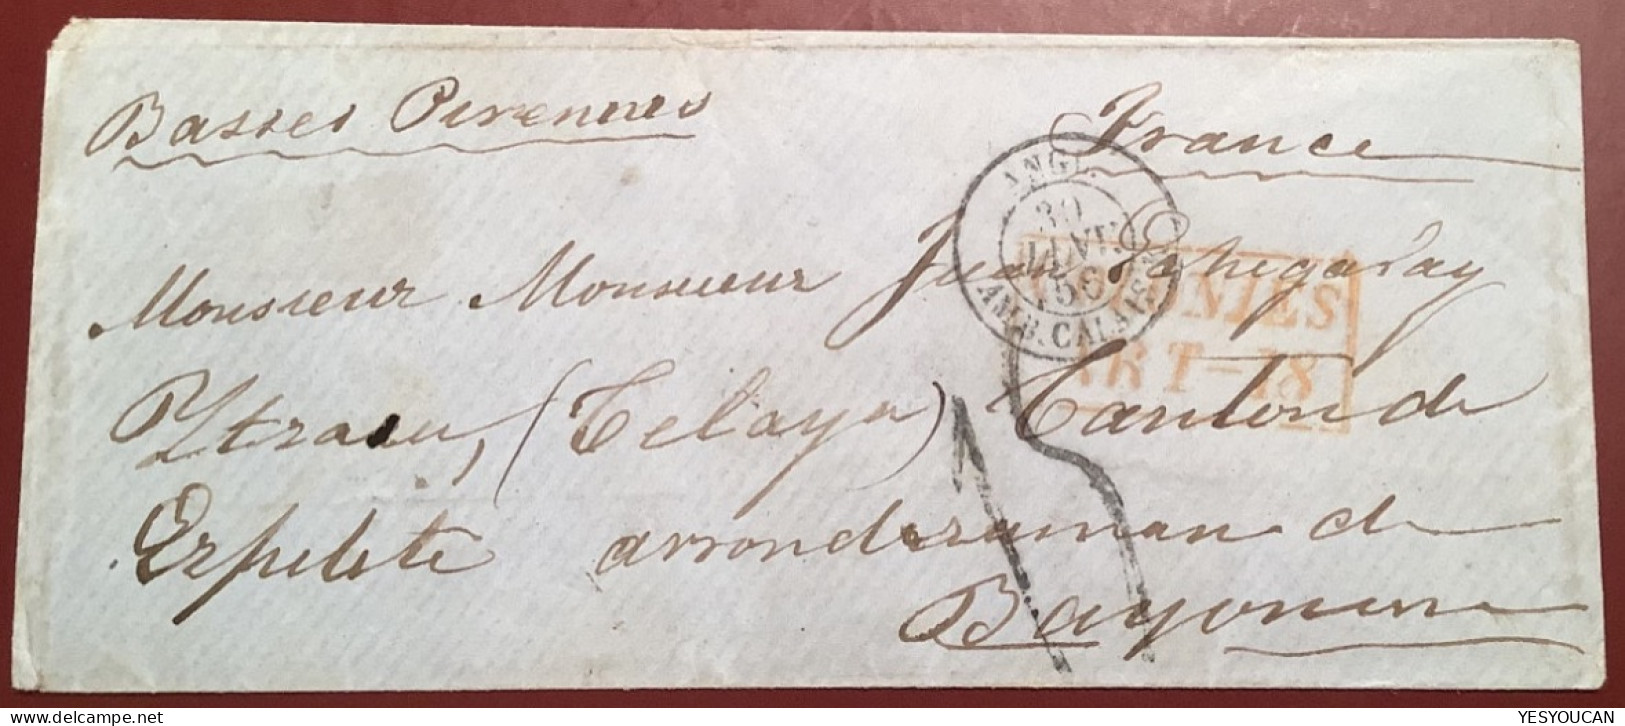 Basses Pirennees
France
ANGL.
30
JANV.
56
AMB. CALAIS
COLONIES
ART-18
Monsieur Monsieur Juan Echegaray
Ytrasu, (Celaya) Canton de
Ezpelete arrondizaman de
Bayonne
YESYOUCAN